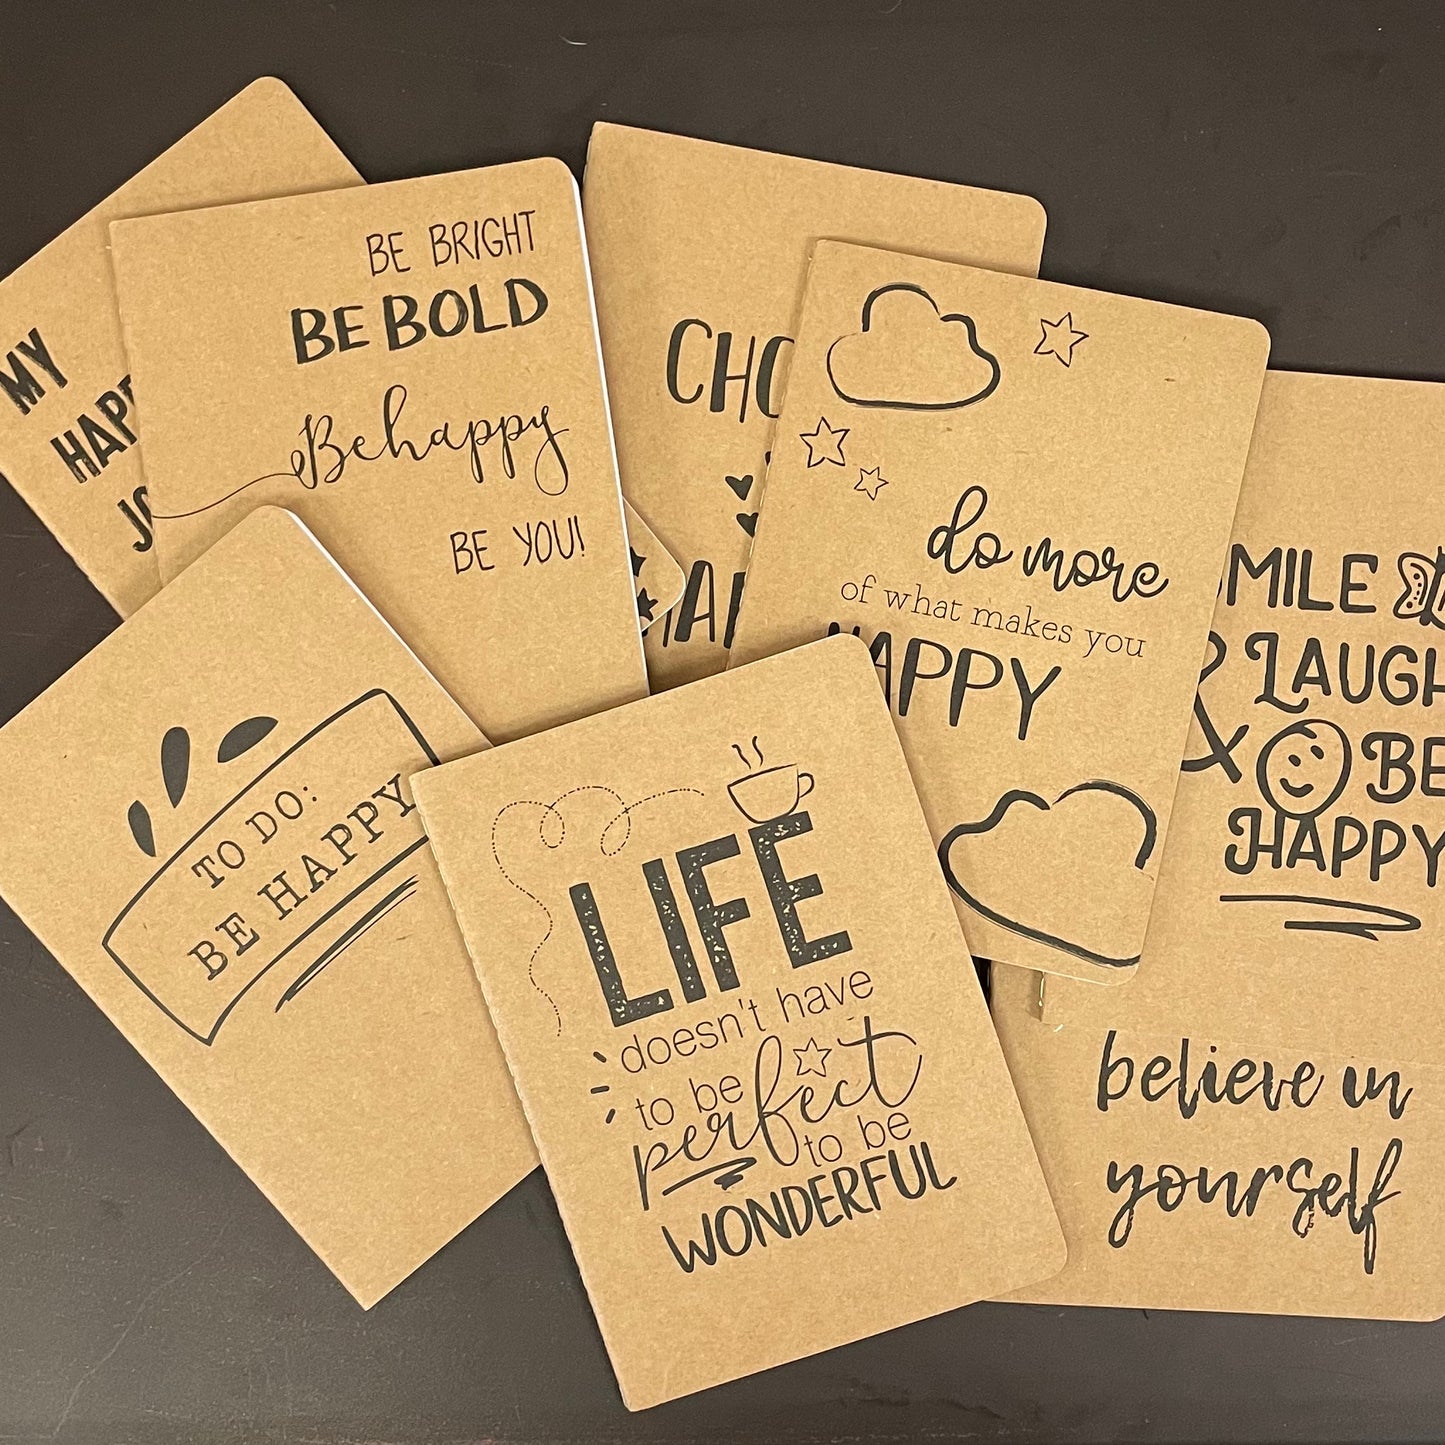 MY
BE BRIGHT
BE BOLD
Be happy
BE YOU!
do more
of what makes you
HAPPY
LAUGH
& BE
HAPPY
TO DO:
BE HAPPY
LIFE
doesn't have
to be
perfect
to be
WONDERFUL
believe in
yourself